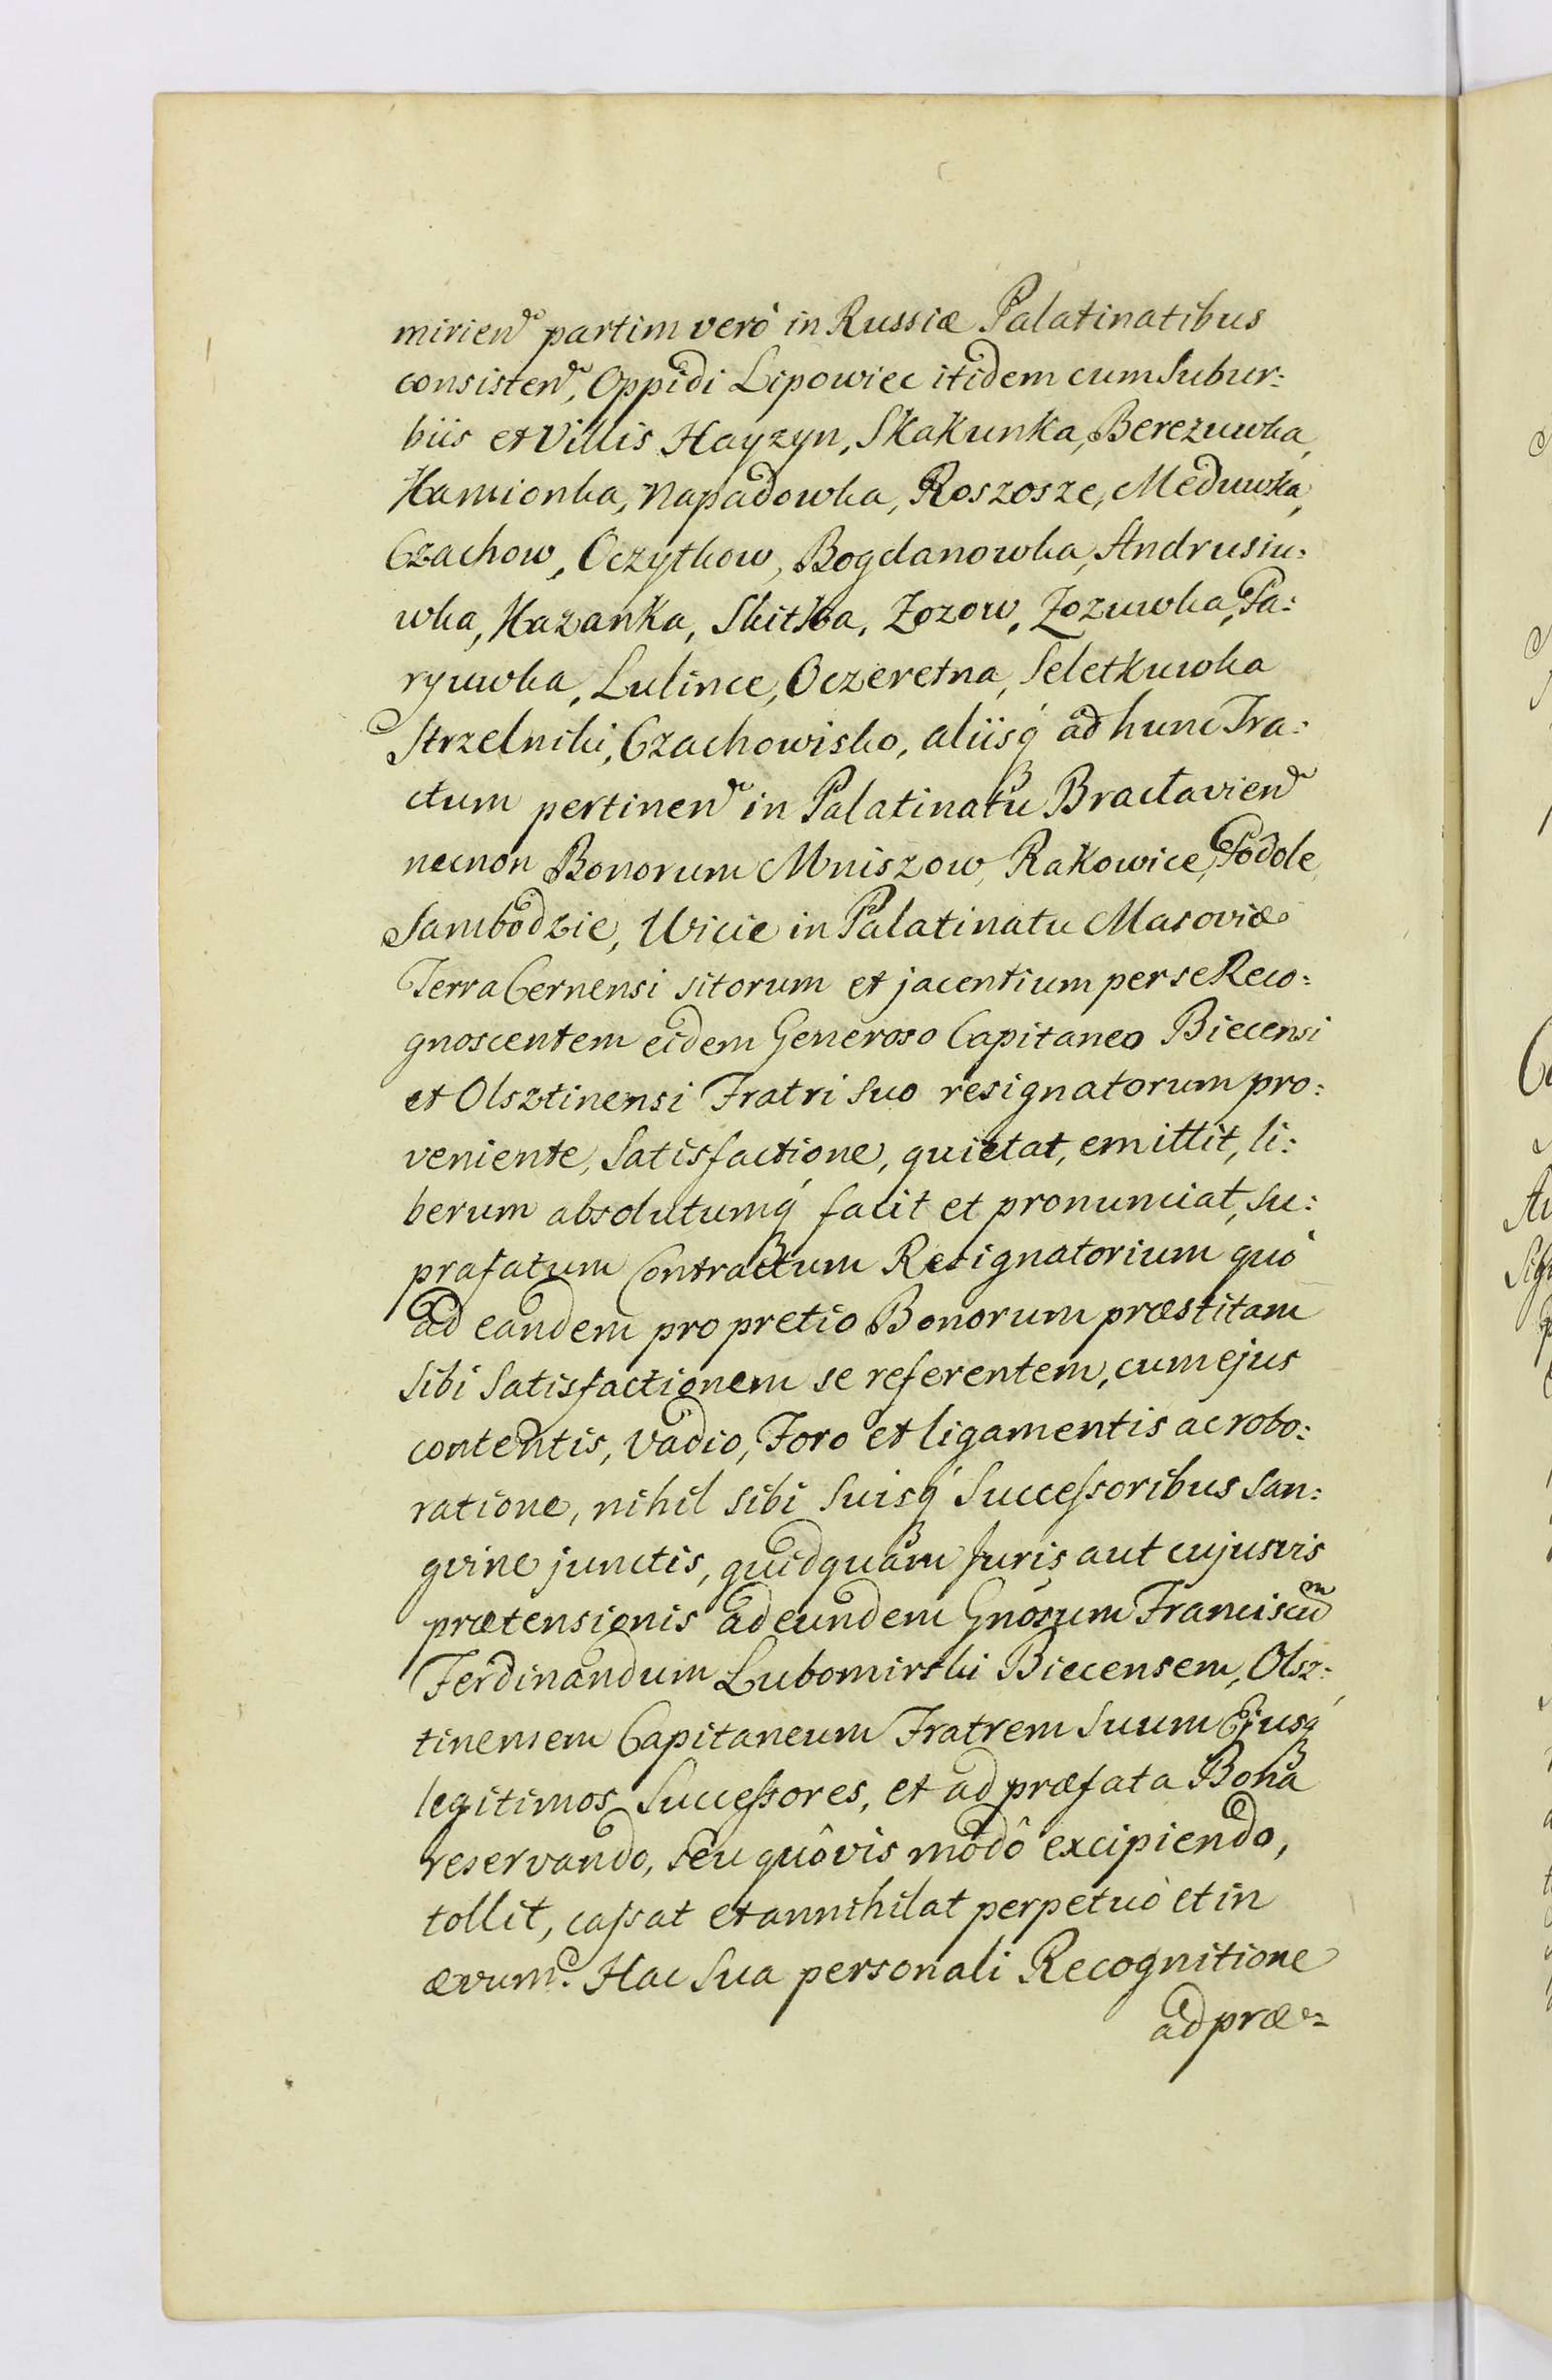 mirien partim verò in Russiæ Palatinatibus
consisten, Oppidi Lipowiec itidem cum Subur:
biis et Villis Hayzyn, Skakunka, Berezuwka,
Kamionka, Napadowka, Roszosze, Meduwka,
Czachow, Oczytkow, Bogdanowka, Andrusiu:
wka, Kazanka, Skitka, Zozow, Zozuwka, Pa:
ryuwka, Lulince, Oczeretna, Seletkuwka
Strzelniki, Czachowisko, aliisq ad hunc Tra:
ctum pertinen in Palatinatu Braclavien
necnon Bonorum Mniszow, Rakowice, Podole,
Sambodzie, Wicie in Palatinatu Masoviæ
Terra Cernensi sitorum et jacentium per se Reco:
gnoscentem eidem Generoso Capitaneo Biecensi
et Olsztinensi Fratri suo resignatorum pro:
veniente, Satisfactione, quietat, emittit, li:
berum absolutumq facit et pronunciat, su:
prafatum Contractum Resignatorium quò
ad eandem pro pretio Bonorum præstitam
sibi Satisfactionem se referentem, cum ejus
contentis, vadio, Foro et ligamentis ac robo:
ratione, nihil sibi suisq Successoribus san:
gvine junctis, quidquam Juris aut cujusvis
prætensionis ad eundem Gnosum Franciscum
Ferdinandum Lubomirski Biecensem, Olsz:
tinensem Capitaneum Fratrem Suum Ejusq
legitimos Successores, et ad præfata Bona
reservando, seu quôvis modô excipiendo,
tollit, cassat et annihilat perpetuò et in
ævum. Hac Sua personali Recognitione
ad præ=